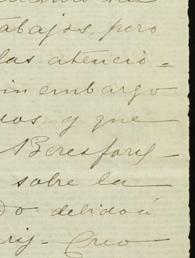 abajos, pero
las atencio-
in embargo
nos y que
Beresford-
sobre la
o debido á
Creo